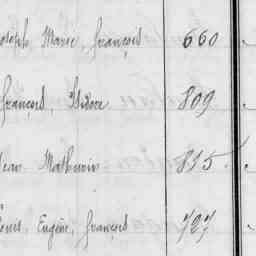 Joseph Marie, François 660
François, Isidore 809
Jean Mathurin 815
Louis, Eugène, François 727